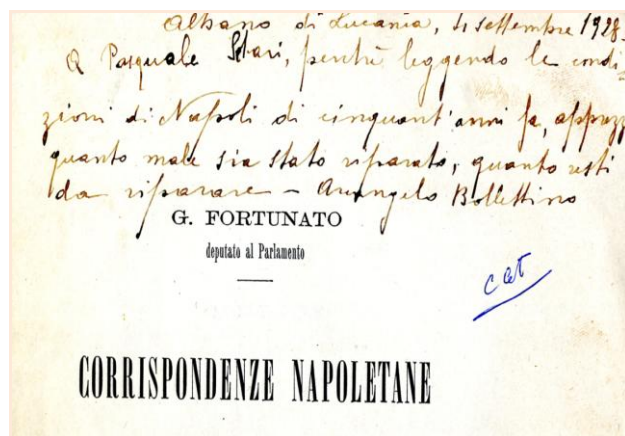 Albano di Lucania, 4 settembre 1928.
A Pasquale perché leggendo le condi=
zioni di Napoli di cinquant'anni fa, apprezzi
quanto male sia stato riparato, quanto resti
da riparare – Arcangelo Bollettino
G. FORTUNATO
deputato al Parlamento
cat
CORRISPONDENZE NAPOLETANE